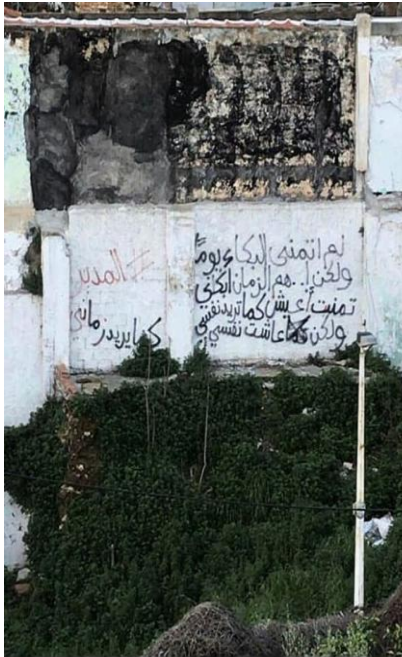 لم اتمنى البكاء يوماً
ولكن هم الزمان ابكاني
تمنيت أعيش كما تريد نفسي
ولكن عاشت نفسي
كما يريد زماني
# المدب